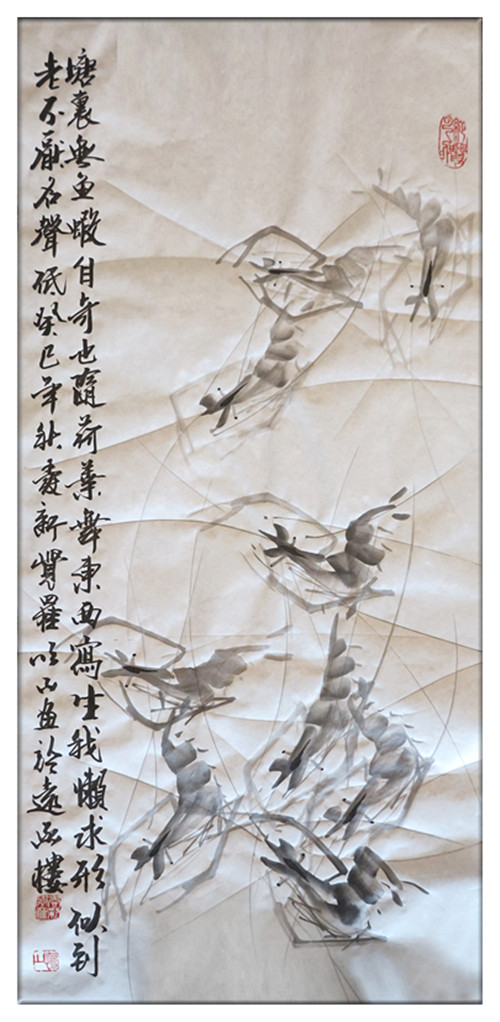 塘裏無魚蝦自奇也隨荷葉舞東西寫生我懶求形似到
老不厭名聲低癸巳年秋愛新覺羅以畫於遠樓